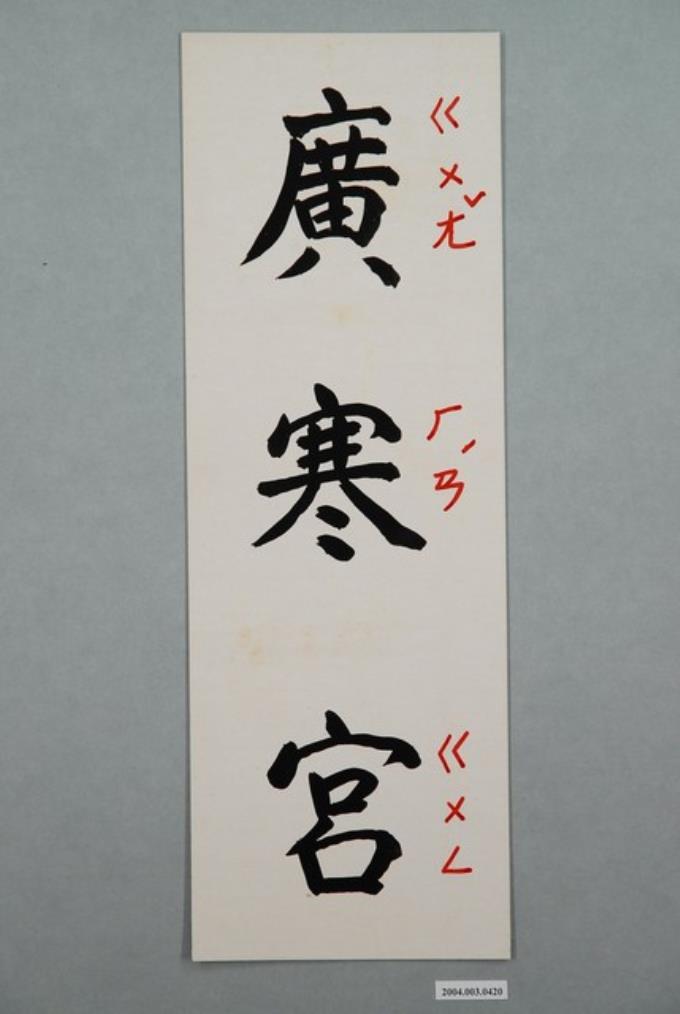 廣寒宮
ㄍㄨㄤˇ
ㄏㄢˊ
ㄍㄨㄥ
2004.003.0420